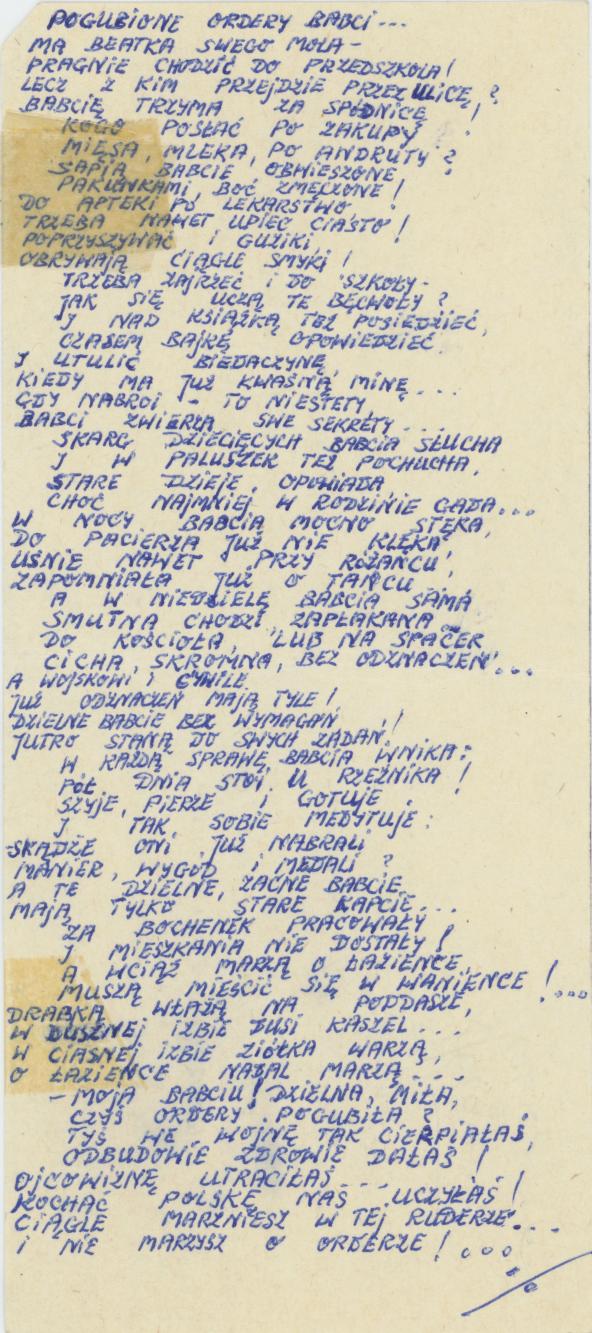 POGUBIONE ORDERY BABCI...
MA BEATKA SWEGO MOLA -
PRAGNIE CHODZIĆ DO PRZEDSZKOLA!
LECZ Z KIM PRZEJDZIE PRZEZ ULICĘ?
BABCIĘ TRZYMA ZA SPÓDNICĘ!
KOGO POSŁAĆ PO ZAKUPY
MIĘSA, MLEKA, PO ANDRUTY?
SAPIĄ BABCIE OBWIESZONE
PAKUNKAMI, BOĆ ZMĘCZONE!
DO APTEKI PO LEKARSTWO
TRZEBA NAWET UPIEC CIASTO!
POPRZYSZYWAĆ I GUZIKI,
OBRYWAJĄ CIĄGLE SMYKI!
TRZEBA ZAJRZEĆ I DO SZKOŁY -
JAK SIĘ UCZĄ TE BĘCWOŁY?
J NAD KSIĄŻKĄ TEŻ POSIEDZIEĆ,
CZASEM BAJKĘ OPOWIEDZIEĆ
J UTULIĆ BIEDACZYNĘ,
KIEDY MA JUŻ KWAŚNĄ MINĘ...
GDY NABROI - TO NIESTETY
BABCI ZWIERZA SWE SEKRETY...
SKARG DZIECIĘCYCH BABCIA SŁUCHA
J W PALUSZEK TEŻ POCHUCHA,
STARE DZIEJE OPOWIADA
CHOĆ NAJMNIEJ W RODZINIE GADA...
W NOCY BABCIA MOCNO STĘKA,
DO PACIERZA JUŻ NIE KLĘKA
UŚNIE NAWET PRZY RÓŻAŃCU,
ZAPOMNIAŁA JUŻ O TAŃCU
A W NIEDZIELĘ BABCIA SAMA
SMUTNA CHODZI, ZAPŁAKANA
DO KOŚCIOŁA, LUB NA SPACER
CICHA, SKROMNA, BEZ ODZNACZEŃ...
A WOJSKOWI I CYWILE
JUŻ ODZNACZEŃ MAJĄ TYLE!
DZIELNE BABCIE BEZ WYMAGAŃ
JUTRO STANĄ DO SWYCH ZADAŃ!
W KAŻDĄ SPRAWĘ BABCIA WNIKA:
PÓŁ DNIA STOI U RZEŹNIKA!
SZYJE, PIERZE I GOTUJE
J TAK SOBIE MEDYTUJE:
- SKĄDŻE ONI JUŻ NABRALI
MANIER, WYGÓD I MEDALI?
A TE DZIELNE, ZACNE BABCIE
MAJĄ TYLKO STARE KAPCIE...
ZA BOCHENEK PRACOWAŁY
J MIESZKANIA NIE DOSTAŁY!
A WCIĄŻ MARZĄ O ŁAZIENCE,
MUSZĄ MIEŚCIĆ SIĘ W WANIENCE!...
DRABKĄ WŁAŻĄ NA PODDASZE,
W DUSZNEJ IZBIE DUSI KASZEL...
W CIASNEJ IZBIE ZIÓŁKA WARZĄ,
O ŁAZIENCE NADAL MARZĄ...
- MOJA BABCIU! DZIELNA, MIŁA,
CZYŚ ORDERY POGUBIŁA?
TYŚ WE WOJNĘ TAK CIERPIAŁAŚ,
ODBUDOWIE ZDROWIE DAŁAŚ!
OJCOWIZNĘ UTRACIŁAŚ...
KOCHAĆ POLSKĘ NAS UCZYŁAŚ!
CIĄGLE MARZNIESZ W TEJ RUDERZE...
I NIE MARZYSZ O ORDERZE!...